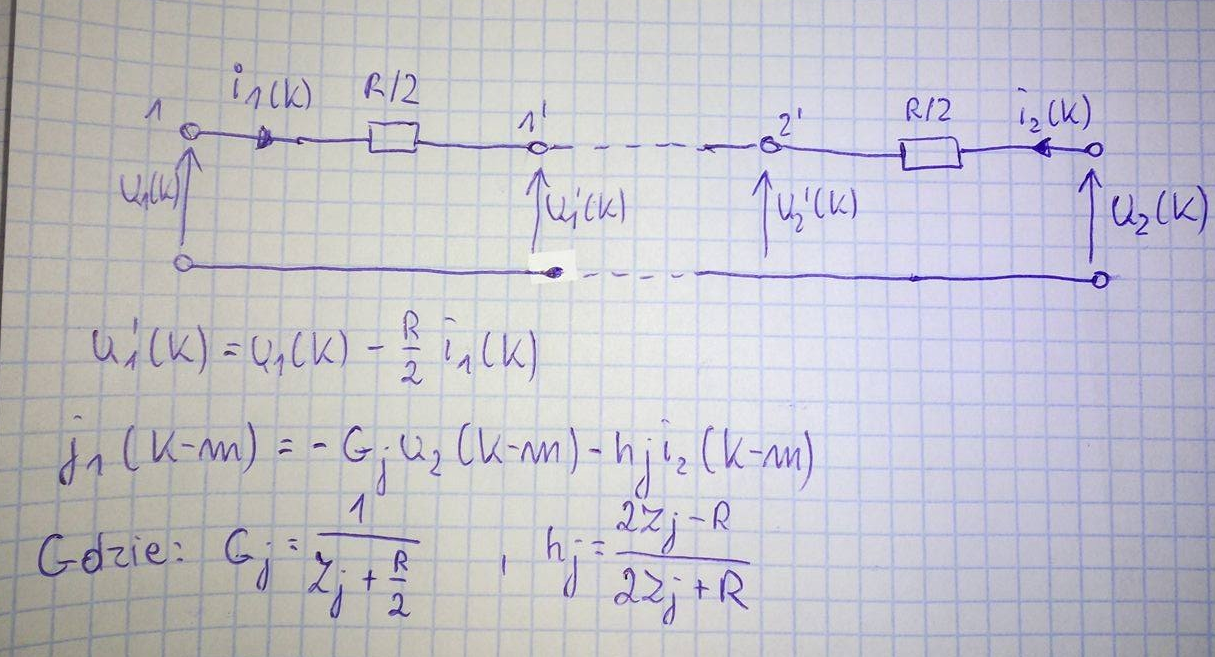 1 i₁(k) R/2 1' 2' R/2 i₂(k)
u₁(k) u₁'(k) u₂'(k) u₂(k)
u₁'(k) = u₁(k) - R/2 i₁(k)
j₁(k-m) = - Gⱼ u₂(k-m) - hⱼ i₂(k-m)
Gdzie: Gⱼ = 1/(Zⱼ + R/2) , hⱼ = (2Zⱼ - R)/(2Zⱼ + R)